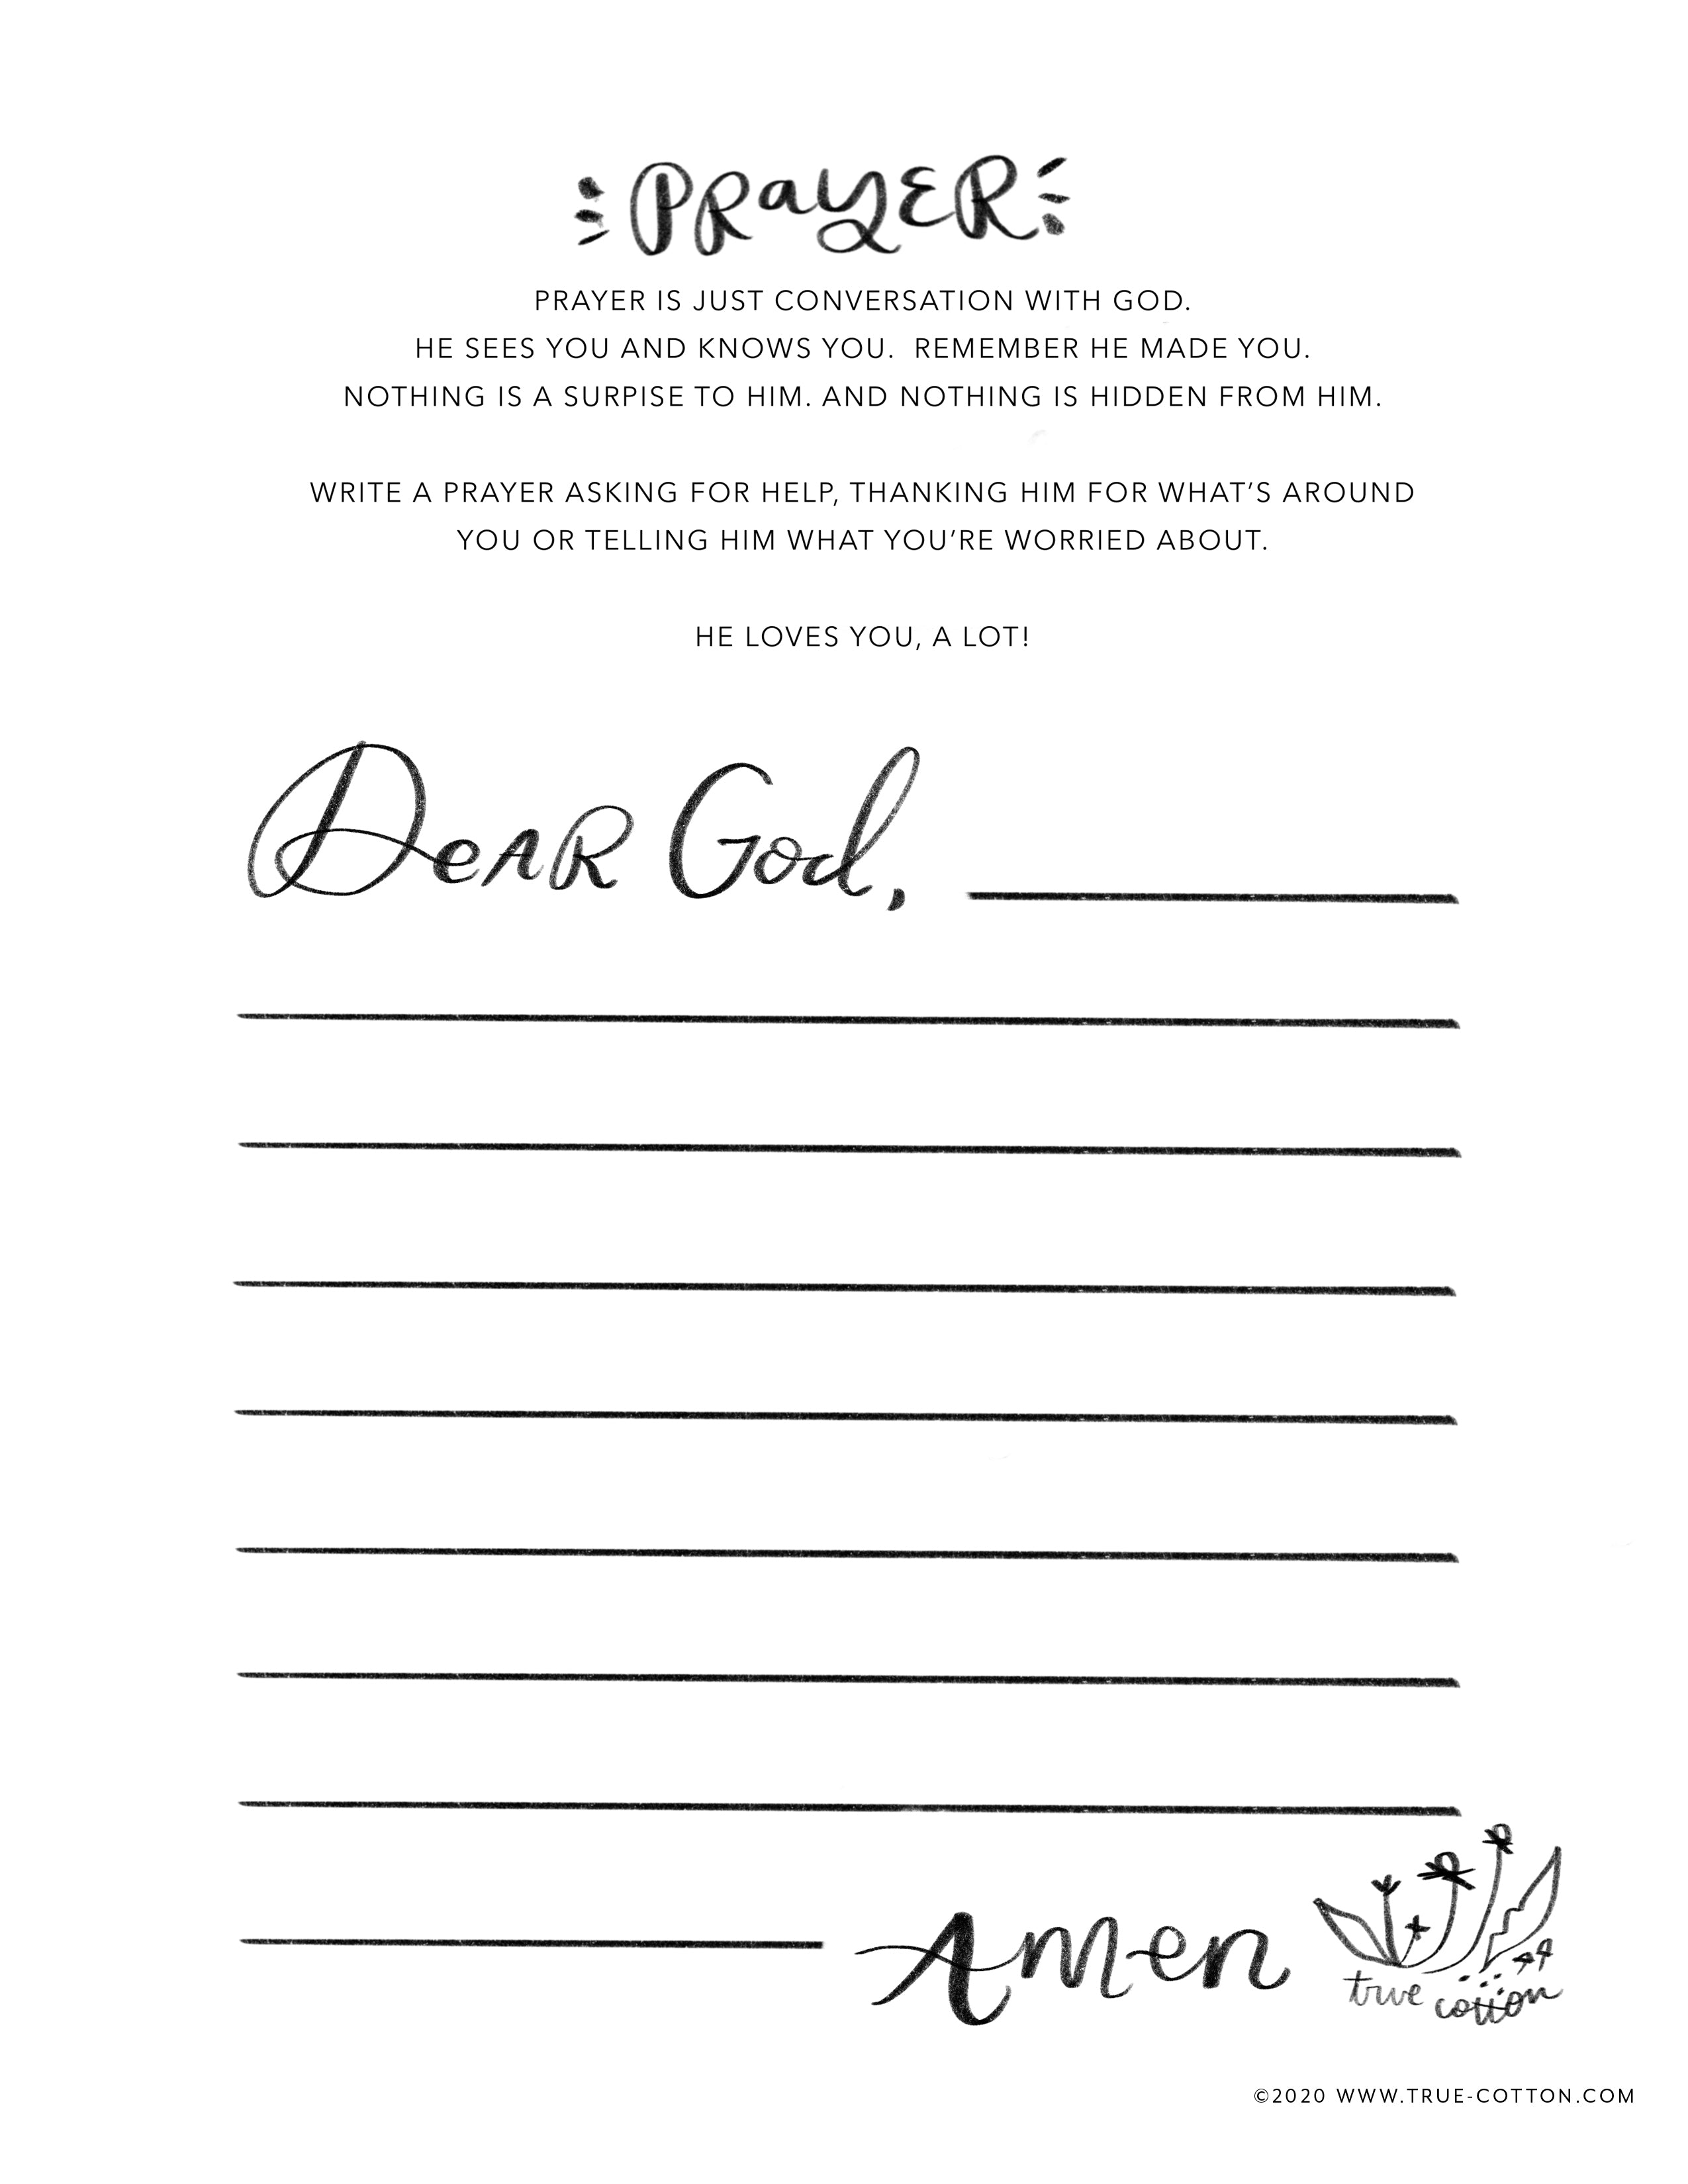 PRayER
PRAYER IS JUST CONVERSATION WITH GOD.
HE SEES YOU AND KNOWS YOU.  REMEMBER HE MADE YOU.
NOTHING IS A SURPISE TO HIM. AND NOTHING IS HIDDEN FROM HIM.
WRITE A PRAYER ASKING FOR HELP, THANKING HIM FOR WHAT'S AROUND
YOU OR TELLING HIM WHAT YOU'RE WORRIED ABOUT.
HE LOVES YOU, A LOT!
DeAR God,
Amen
true cotton
©2020 WWW.TRUE-COTTON.COM